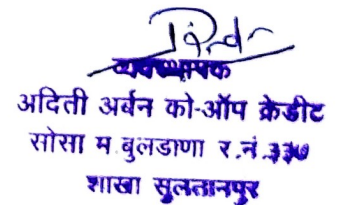 व्यवस्थापक
अदिती अर्बन को-ऑप क्रेडीट
सोसा म.बुलडाणा र.नं.३३७
शाखा सुलतानपुर